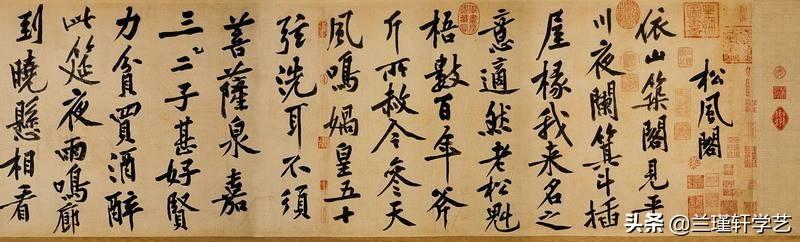 松風閣
依山築閣見平
川夜闌箕斗插
屋椽我来名之
意適然老松魁
梧數百年斧
斤所赦今參天
風鳴媧皇五十
弦洗耳不須
菩薩泉嘉
三二子甚好賢
力貧買酒醉
此筵夜雨鳴廊
到曉懸相看
头条 @兰瑾轩学艺